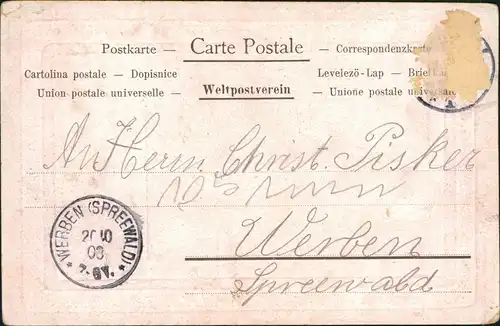 Postkarte — Carte Postale — Correspondenzkarte
Cartolina postale — Dopisnice
Levelező-Lap — Brief
Union postale universelle — Weltpostverein — Unione postale universale
An Herrn Christ. Pisker
Werben
Spreewald
WERBEN (SPREEWALD)
20 10
03
7-8V.